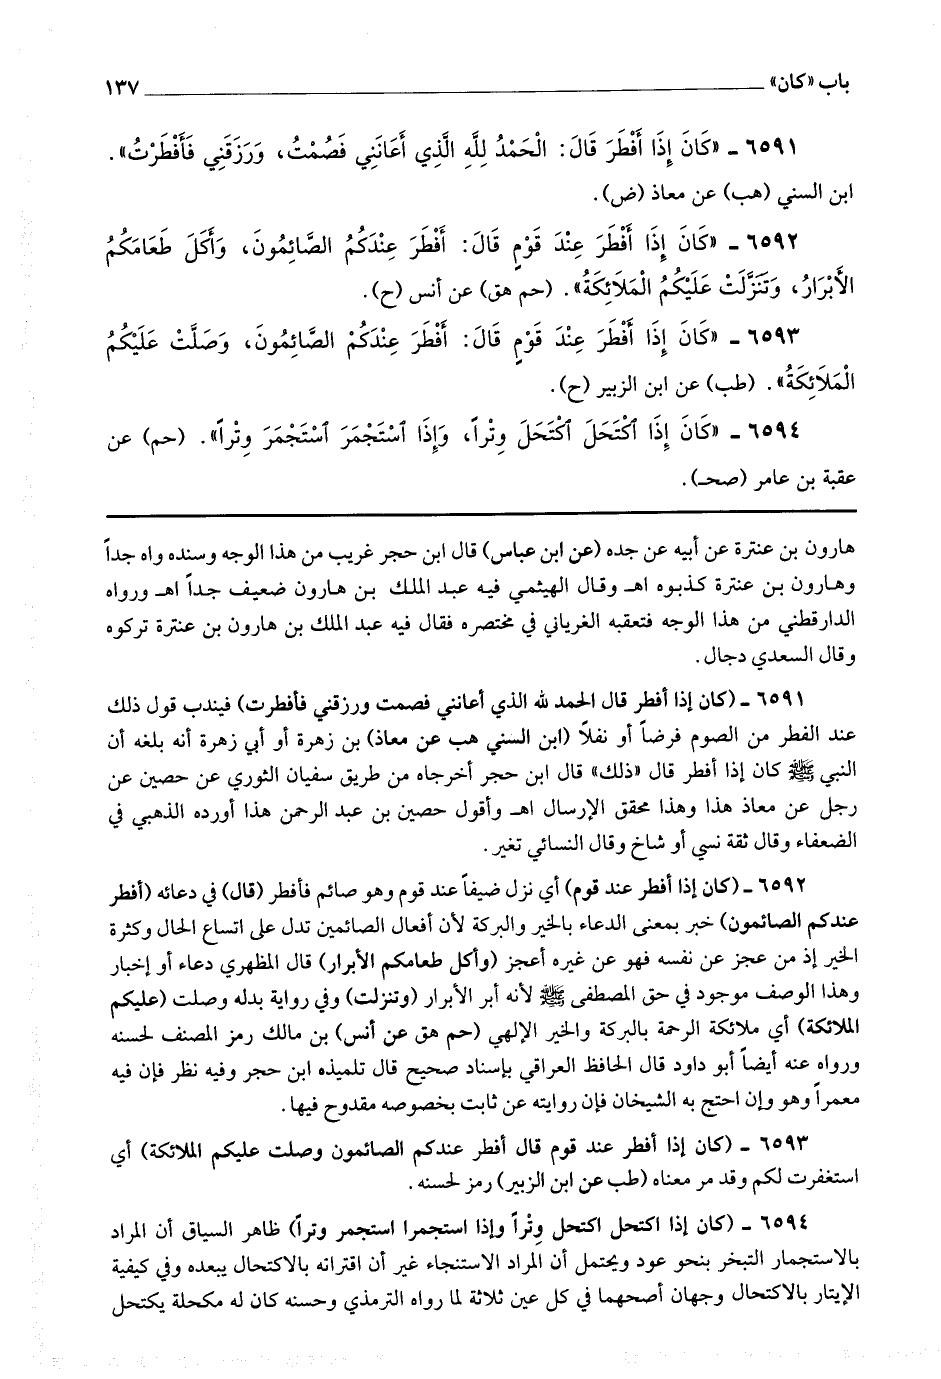 باب «كان» ١٣٧
٦٥٩١ - «كَانَ إِذَا أَفْطَرَ قَالَ: الْحَمْدُ لِلَّهِ الَّذِي أَعَانَنِي فَصُمْتُ، وَرَزَقَنِي فَأَفْطَرْتُ».
ابن السني (هب) عن معاذ (ض).
٦٥٩٢ - «كَانَ إِذَا أَفْطَرَ عِنْدَ قَوْمٍ قَالَ: أَفْطَرَ عِنْدَكُمُ الصَّائِمُونَ، وَأَكَلَ طَعَامَكُمُ
الأَبْرَارُ، وَتَنَزَّلَتْ عَلَيْكُمُ الْمَلَائِكَةُ». (حم هق) عن أنس (ح).
٦٥٩٣ - «كَانَ إِذَا أَفْطَرَ عِنْدَ قَوْمٍ قَالَ: أَفْطَرَ عِنْدَكُمْ الصَّائِمُونَ، وَصَلَّتْ عَلَيْكُمُ
الْمَلَائِكَةُ». (طب) عن ابن الزبير (ح).
٦٥٩٤ - «كَانَ إِذَا ٱكْتَحَلَ ٱكْتَحَلَ وِتْراً، وَإِذَا ٱسْتَجْمَرَ ٱسْتَجْمَرَ وِتْراً». (حم) عن
عقبة بن عامر (صحـ).
هارون بن عنترة عن أبيه عن جده (عن ابن عباس) قال ابن حجر غريب من هذا الوجه وسنده واه جداً
وهارون بن عنترة كذبوه اهـ وقال الهيثمي فيه عبد الملك بن هارون ضعيف جداً اهـ ورواه
الدارقطني من هذا الوجه فتعقبه الغرياني في مختصره فقال فيه عبد الملك بن هارون بن عنترة تركوه
وقال السعدي دجال.
٦٥٩١ - (كان إذا أفطر قال الحمد لله الذي أعانني فصمت ورزقني فأفطرت) فيندب قول ذلك
عند الفطر من الصوم فرضاً أو نفلاً (ابن السني هب عن معاذ) بن زهرة أو أبي زهرة أنه بلغه أن
النبي ﷺ كان إذا أفطر قال «ذلك» قال ابن حجر أخرجاه من طريق سفيان الثوري عن حصين عن
رجل عن معاذ هذا وهذا محقق الإرسال اهـ وأقول حصين بن عبد الرحمن هذا أورده الذهبي في
الضعفاء وقال ثقة نسي أو شاخ وقال النسائي تغير.
٦٥٩٢ - (كان إذا أفطر عند قوم) أي نزل ضيفاً عند قوم وهو صائم فأفطر (قال) في دعائه (أفطر
عندكم الصائمون) خبر بمعنى الدعاء بالخير والبركة لأن أفعال الصائمين تدل على اتساع الحال وكثرة
الخير إذ من عجز عن نفسه فهو عن غيره أعجز (وأكل طعامكم الأبرار) قال المظهري دعاء أو إخبار
وهذا الوصف موجود في حق المصطفى ﷺ لأنه أبر الأبرار (وتنزلت) وفي رواية بدله وصلت (عليكم
الملائكة) أي ملائكة الرحمة بالبركة والخير الإلهي (حم هق عن أنس) بن مالك رمز المصنف لحسنه
ورواه عنه أيضاً أبو داود قال الحافظ العراقي بإسناد صحيح قال تلميذه ابن حجر وفيه نظر فإن فيه
معمراً وهو وإن احتج به الشيخان فإن روايته عن ثابت بخصوصه مقدوح فيها.
٦٥٩٣ - (كان إذا أفطر عند قوم قال أفطر عندكم الصائمون وصلت عليكم الملائكة) أي
استغفرت لكم وقد مر معناه (طب عن ابن الزبير) رمز لحسنه.
٦٥٩٤ - (كان إذا اكتحل اكتحل وِتْراً وإذا استجمرا استجمر وتراً) ظاهر السياق أن المراد
بالاستجمار التبخر بنحو عود ويحتمل أن المراد الاستنجاء غير أن اقترانه بالاكتحال يبعده وفي كيفية
الإيتار بالاكتحال وجهان أصحهما في كل عين ثلاثة لما رواه الترمذي وحسنه كان له مكحلة يكتحل